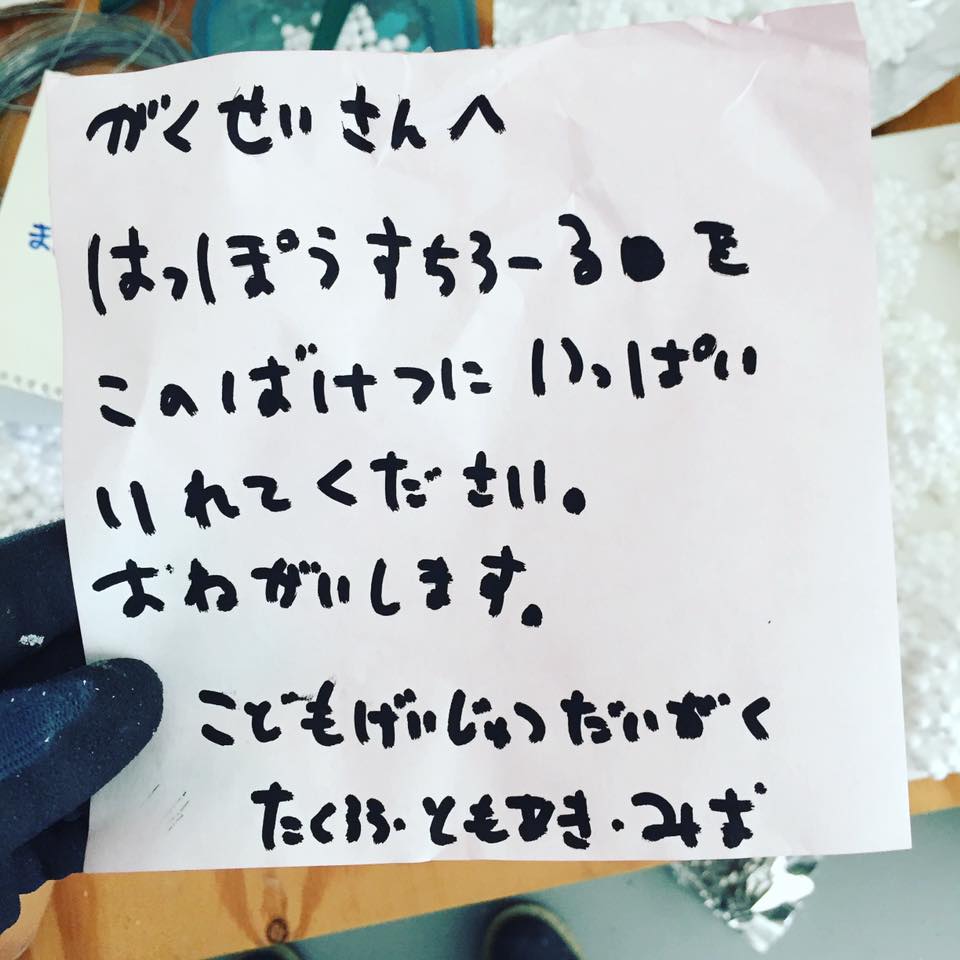 がくせいさんへ
はっぽうすちろーる●を
このばけつにいっぱい
いれてください。
おねがいします。
こどもげいじゅつだいがく
たくろう・ともゆき・みずき
ま